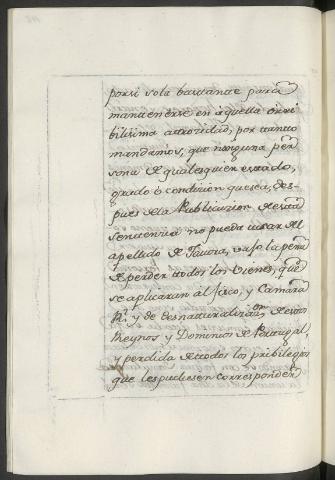 por si sola bastante para
mantenerse en aquella orri
bilisima atrocidad, por tanto
mandamos, que ninguna per
sona de qualesquier estado,
grado ò condicion que sea, des-
pues dela Publicazion de esta
Sentencia no pueda usar del
apellido de Tavora, vajo la pena
de perder todos los vienes, que
se aplicaran al fisco, y Camara
Rl. y de desnaturalizazon. de estos
Reynos y Dominios de Portugal
y perdida de todos los pribilegios
que les pudiesen corresponder